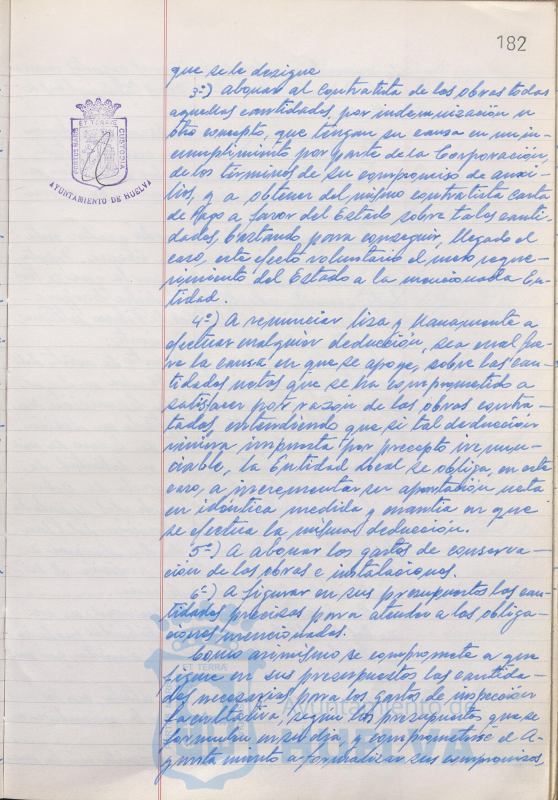 182
que se le designe
3º) abonar al Contratista de las obras todas
aquellas cantidades, por indemnización u
otro concepto, que tengan su causa en un in-
cumplimiento por parte de la Corporación,
de los términos de su compromiso de auxi-
lios, y a obtener del mismo contratista carta
de Pago a favor del Estado sobre tales canti-
dades, bastando para conseguir, llegado el
caso, este efecto voluntario el mero reque-
rimiento del Estado a la mencionada En-
tidad.
4º) A renunciar lisa y llanamente a
efectuar cualquier deducción, sea cual fue-
re la causa en que se apoye, sobre las can-
tidades netas que se ha comprometido a
satisfacer por razón de las obras contra-
tadas, entendiendo que si tal deducción
viniera impuesta por precepto irrenun-
ciable, la Entidad Local se obliga, en este
caso, a incrementar su aportación neta
en idéntica medida y cuantía en que
se efectúa la misma deducción.
5º) A abonar los gastos de conserva-
ción de las obras e instalaciones.
6º) A figurar en sus presupuestos las can-
tidades precisas para atender a las obliga-
ciones mencionadas.
Como asimismo se compromete a que
figure en sus presupuestos las cantida-
des necesarias para los gastos de inspección
facultativa, según los presupuestos que se
formulen en su día, y comprometerse el A-
yuntamiento a formalizar sus compromisos,
PORTUS MARIS ET TERRÆ CUSTODIA
AYUNTAMIENTO DE HUELVA
ET TERRÆ
Ayuntamiento de
HUELVA